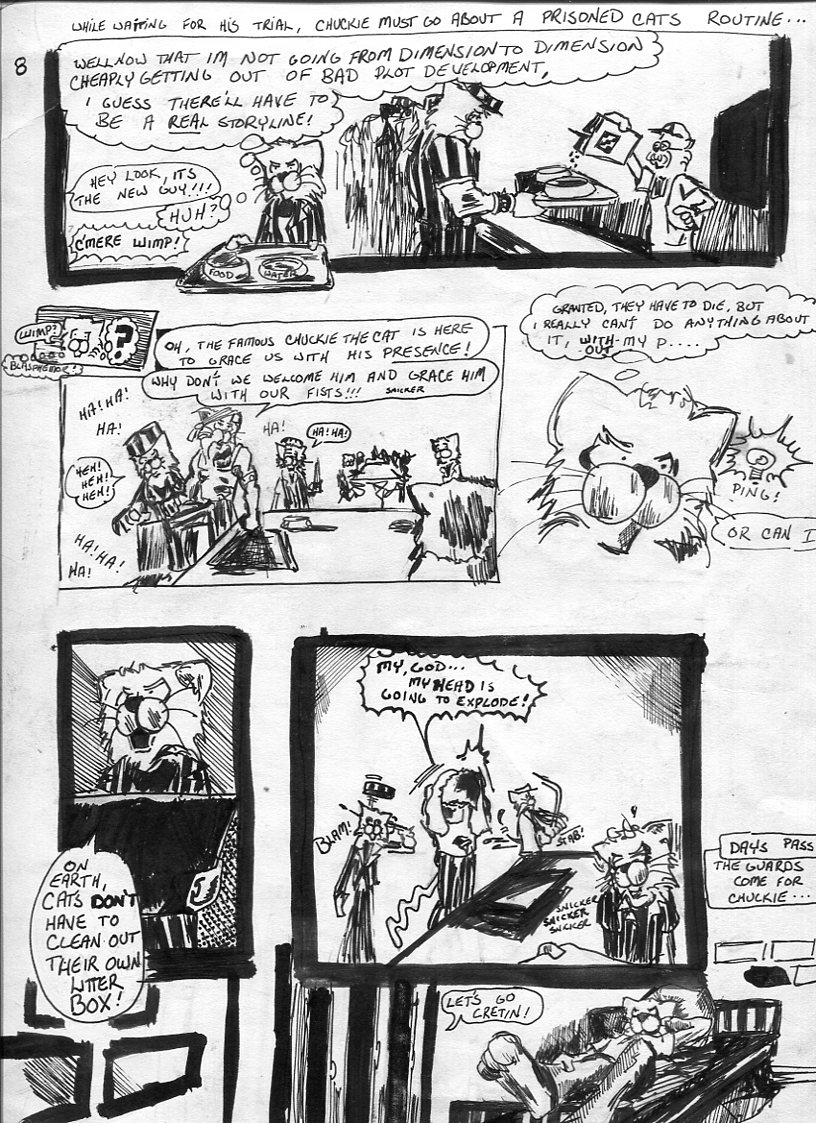 WHILE WAITING FOR HIS TRIAL, CHUCKIE MUST GO ABOUT A PRISONED CATS ROUTINE...
8
WELL NOW THAT IM NOT GOING FROM DIMENSION TO DIMENSION
CHEAPLY GETTING OUT OF BAD PLOT DEVELOPMENT,
I GUESS THERE'LL HAVE TO
BE A REAL STORYLINE!
HEY LOOK, ITS
THE NEW GUY!!!
HUH?
C'MERE WIMP!
FOOD
WATER
WIMP?
?
BLASPHEMOR!
OH, THE FAMOUS CHUCKIE THE CAT IS HERE
TO GRACE US WITH HIS PRESENCE!
WHY DON'T WE WELCOME HIM AND GRACE HIM
WITH OUR FISTS!!! SNICKER
HA! HA!
HA!
HA!
HA! HA!
HEH!
HEH!
HEH!
HA! HA!
HA!
GRANTED, THEY HAVE TO DIE, BUT
I REALLY CAN'T DO ANYTHING ABOUT
IT, WITH-MY P....
OUT
PING!
OR CAN I
ON
EARTH,
CATS DON'T
HAVE TO
CLEAN OUT
THEIR OWN
LITTER
BOX!
MY, GOD...
MY HEAD IS
GOING TO EXPLODE!
BLAM!
STAB!
!
SNICKER
SNICKER
SNICKER
DAYS PASS
THE GUARDS
COME FOR
CHUCKIE...
LET'S GO
CRETIN!